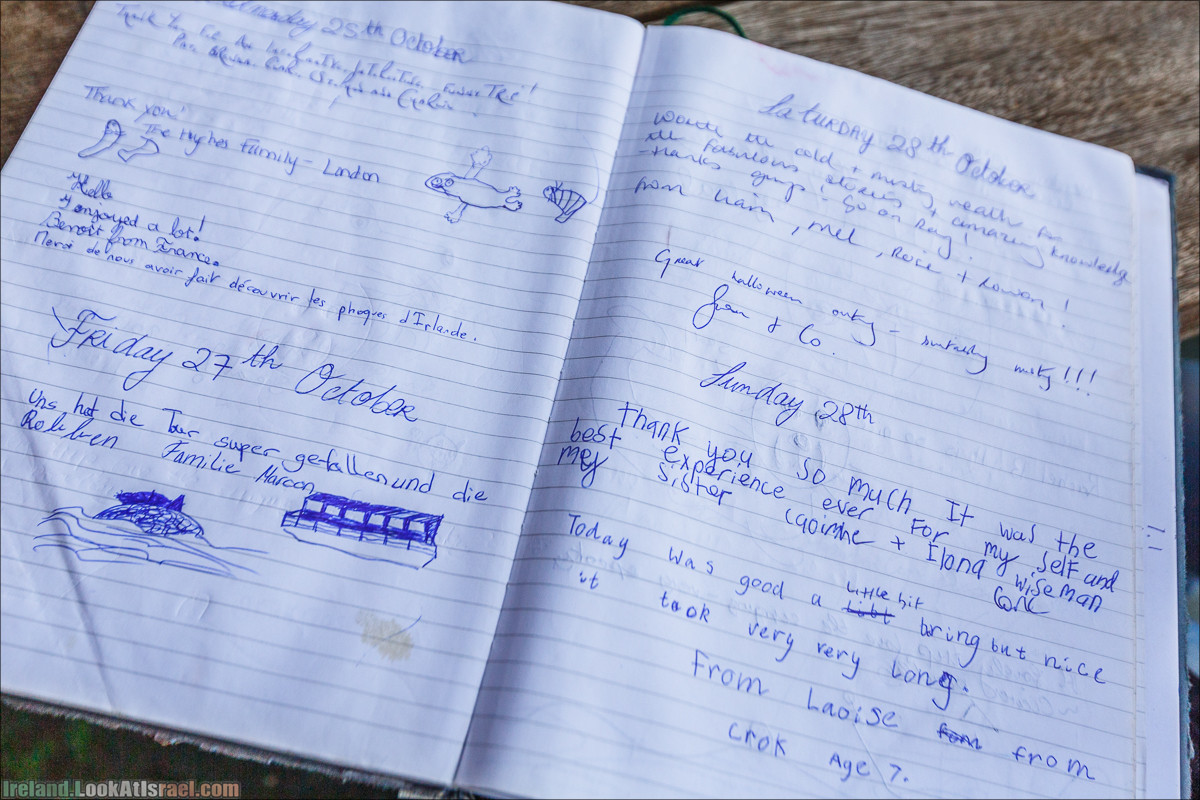 25th October
Thank you for
Thank you!
The Hughes Family - London
Hello
I enjoyed a lot!
Benoît from France.
Merci de nous avoir fait découvrir les phoques d'Irlande.
Friday 27th October
Uns hat die Tour super gefallen und die
Robben Familie Marcon
Saturday 28th October
Worth the cold + misty, really fun
the fabulous stories + amazing knowledge
- thanks Go on Ray!
from Liam, Mel, Rosie + Rowan!
Great halloween outing - suitably misty!!!
& Co.
Sunday 28th
Thank you so much It was the
best experience ever For my self and
my sister caoimhe + Ilona wiseman
Today was good a little bit boring but nice
it took very very long.
From Laoise from
Crok Age 7.
Ireland.LookAtIsrael.com